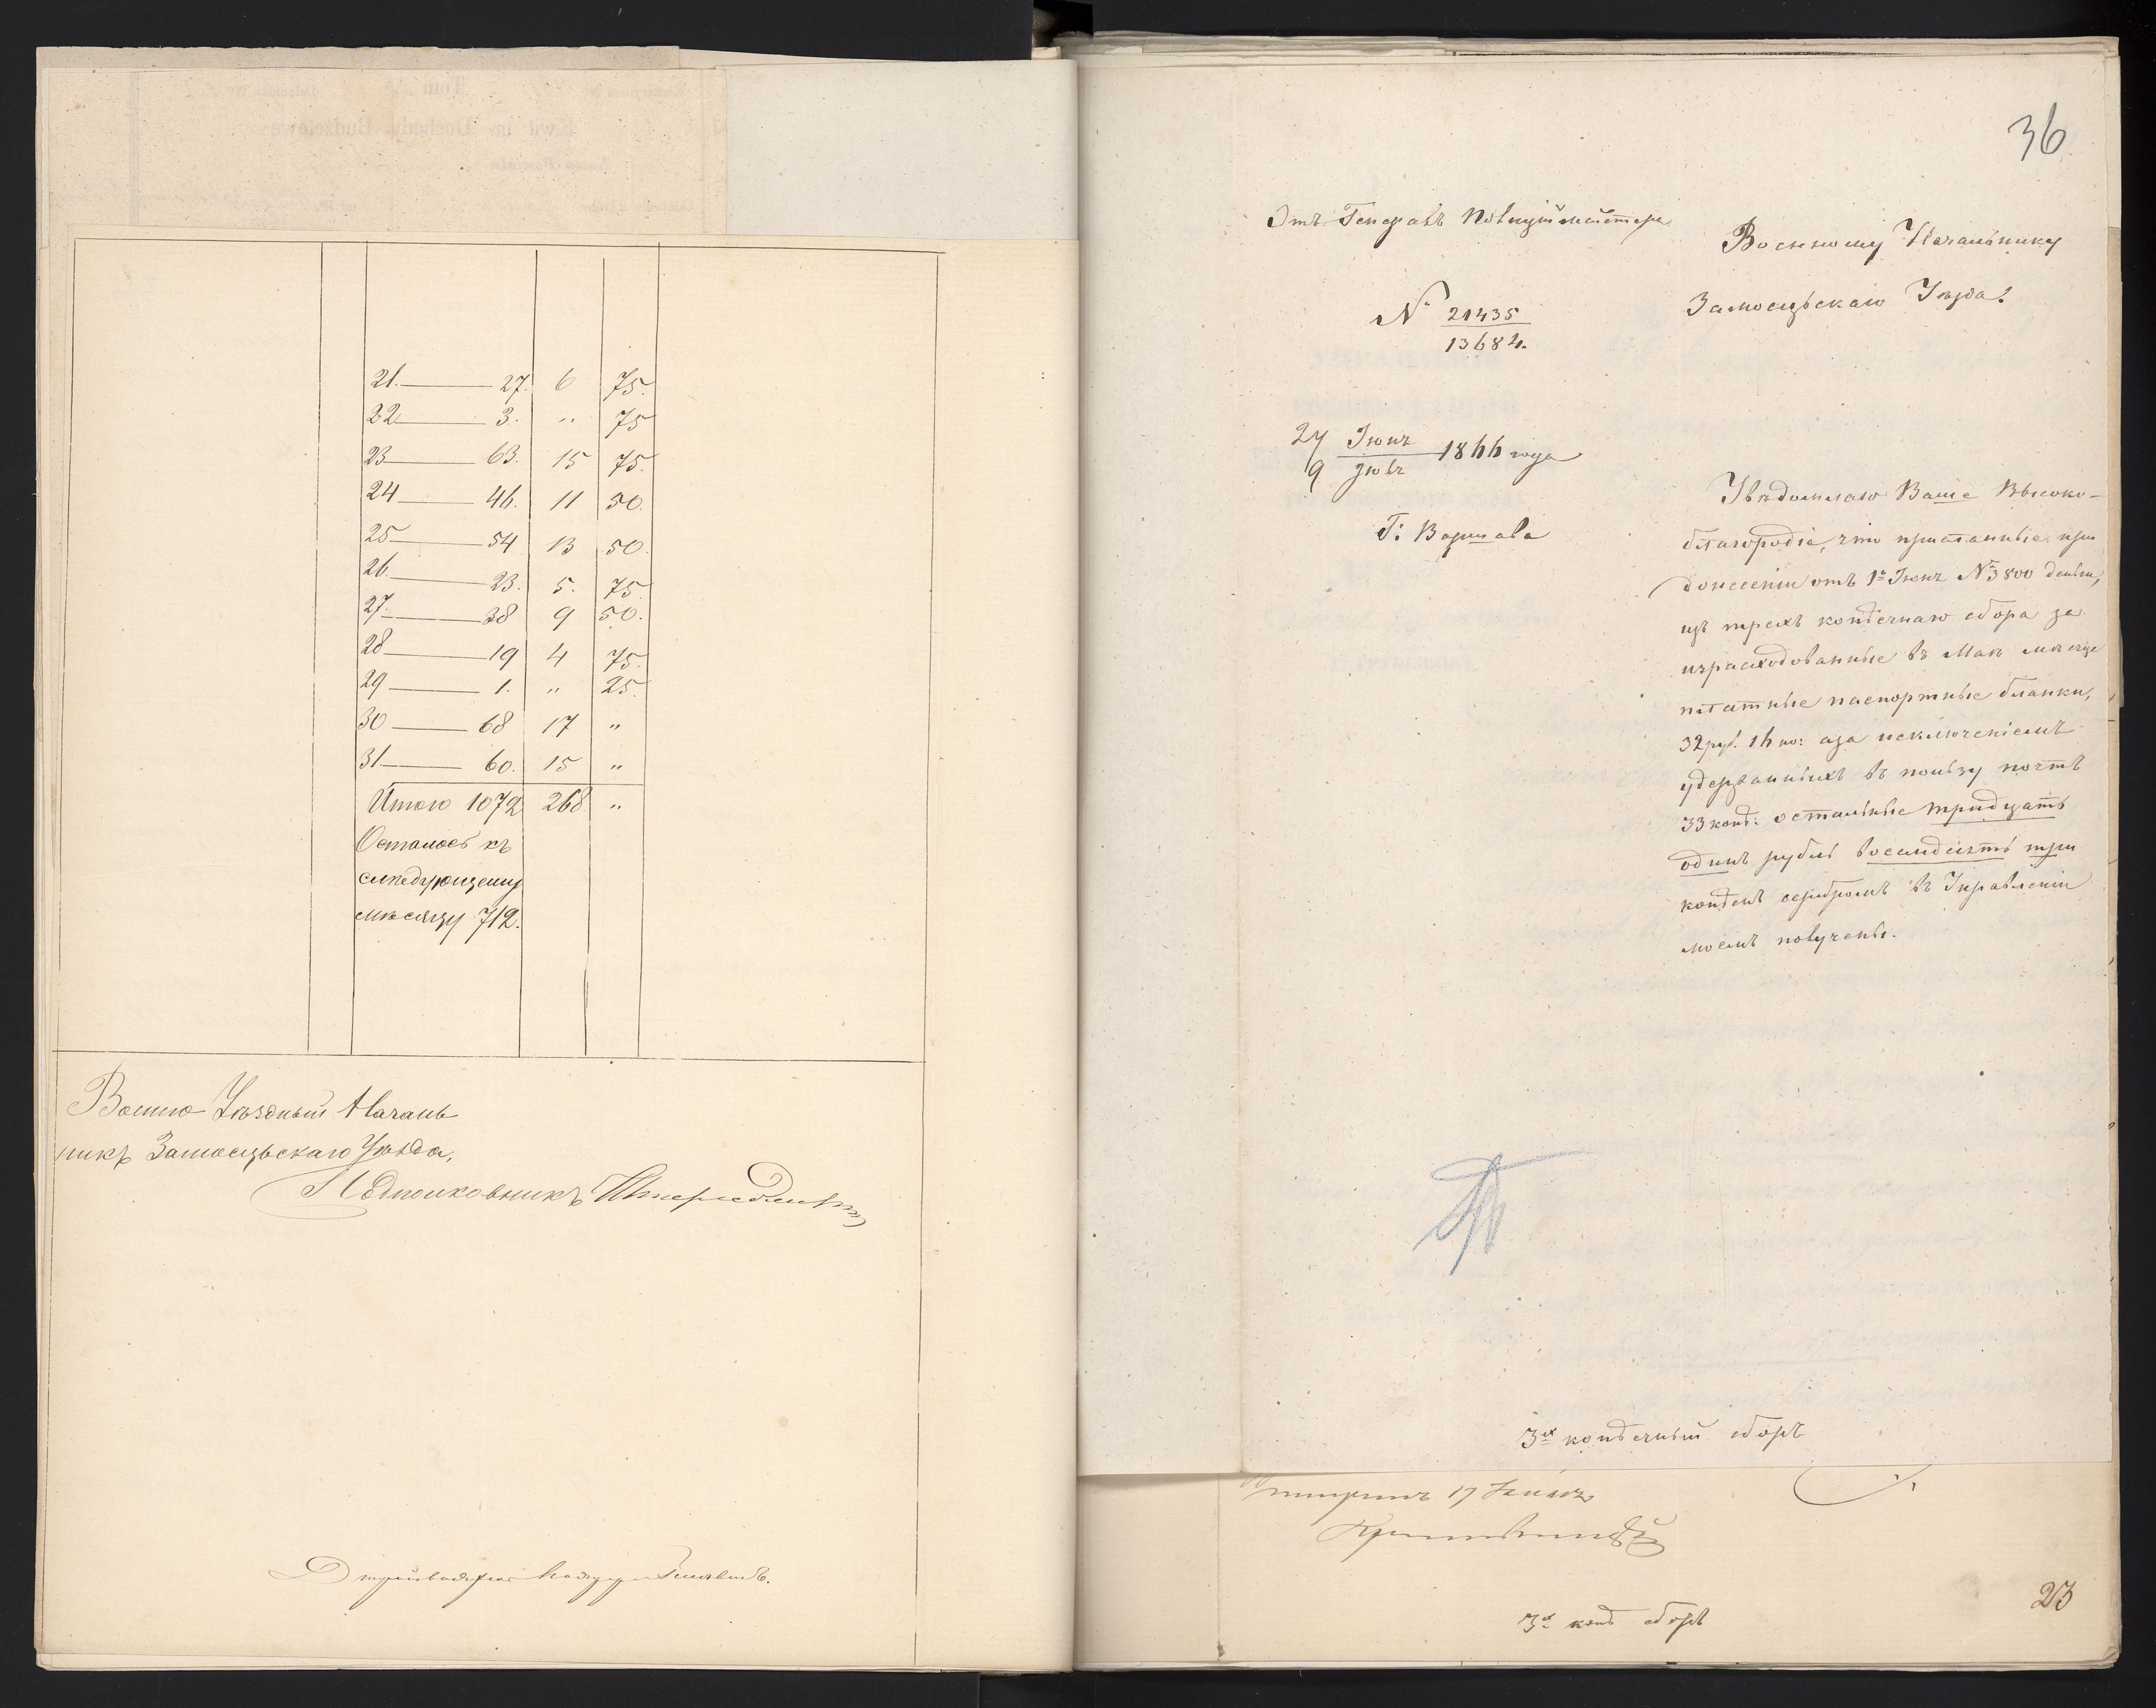 21. — 27. 6 75.
22 — 3. „ 75
23 — 63. 15 75.
24 — 46. 11 50.
25 — 54 13 50.
26. — 23. 5. 75.
27. — 38 9 50.
28 — 19 4 75.
29 — 1. „ 25.
30 — 68 17 „
31. — 60. 15 „
Итого 1072 268 „
Осталось къ
слѣдующему
мѣсяцу 712.
Военно Уѣздный Началь
никъ Замосцьскаго Уѣзда,
Подполковникъ
36
Отъ Генералъ Полиціймейстера
№ 21435
13684.
27 Іюня
9 Іюля 1866 года
Г: Варшава
Военному Начальнику
Замосцьскаго Уѣзда.
Увѣдомляю Ваше Высоко-
благородіе, что присланные при
донесеніи отъ 1го Іюня № 3800 деньги,
изъ трехъ копѣечнаго сбора за
израсходованные въ Маѣ мѣсяцѣ
платные паспортные бланки,
32 руб. 16 ко: а за исключеніемъ
удержанныхъ въ пользу почтъ
33 коп: остальные тридцать
одинъ рубль восемдесятъ три
копѣек серебромъ въ Управленіи
моемъ получены.
3х копѣечный сборъ
17
3х коп сборъ
23